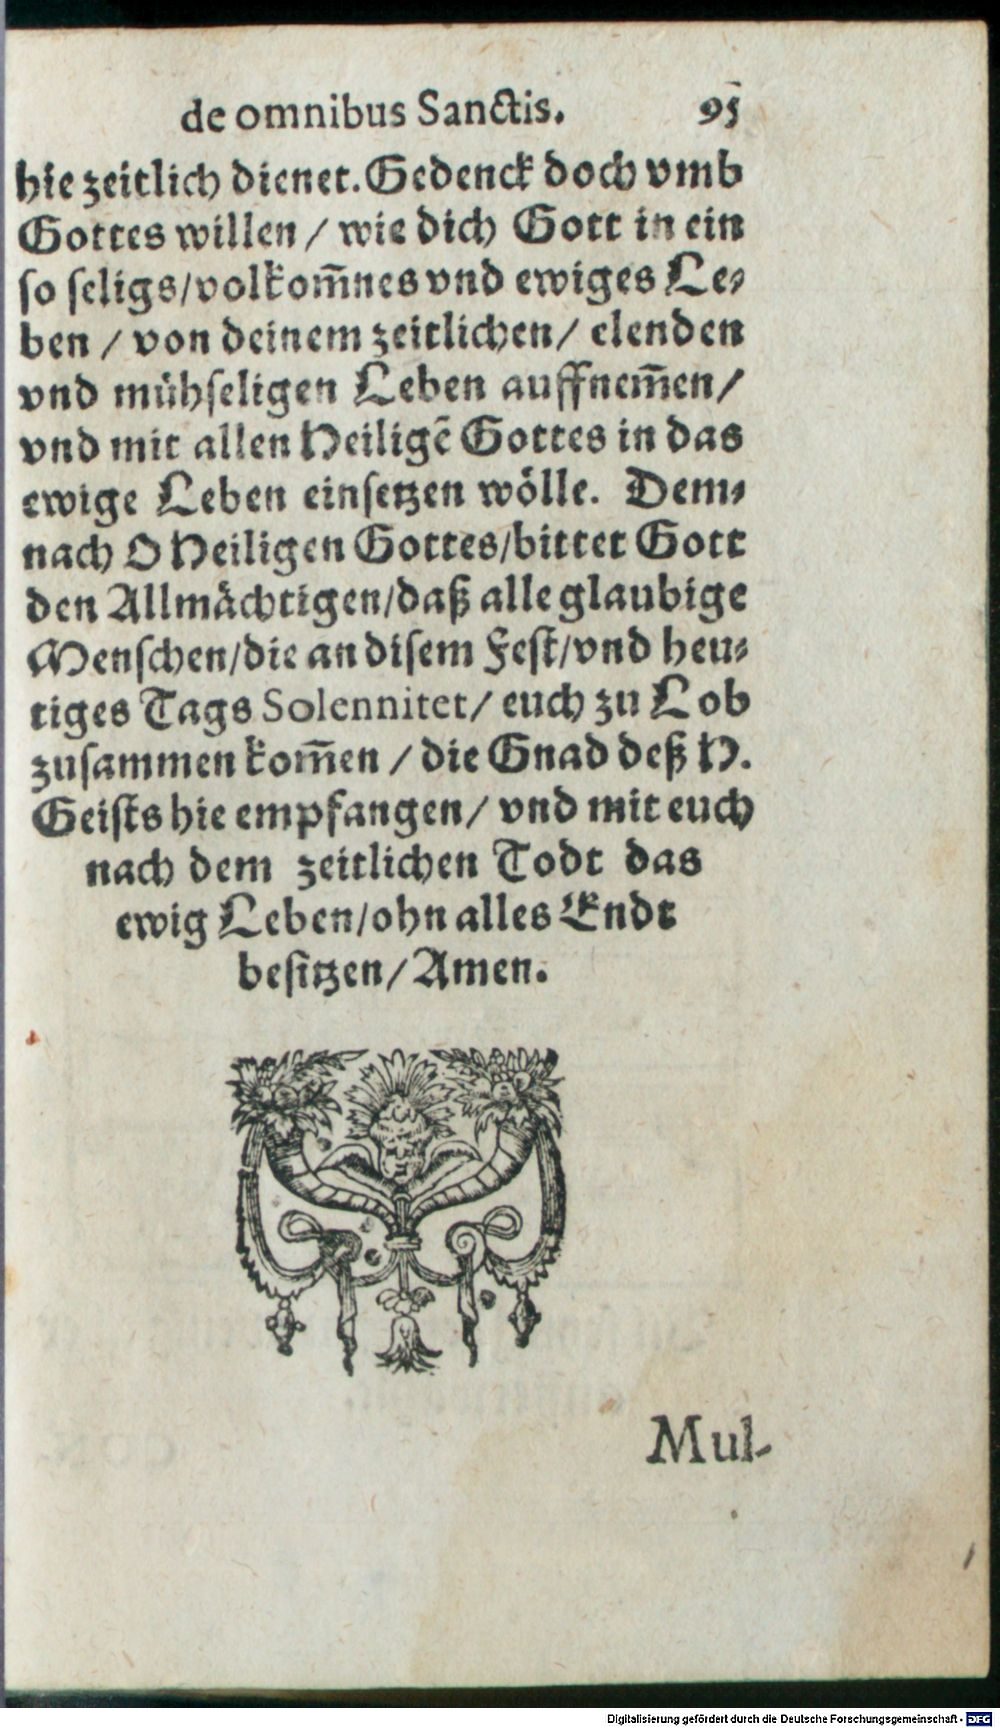 de omnibus Sanctis. 95
hie zeitlich dienet. Gedenck doch vmb
Gottes willen / wie dich Gott in ein
so seligs/volkom̃nes vnd ewiges Le⸗
ben / von deinem zeitlichen/ elenden
vnd mühseligen Leben auffnem̃en/
vnd mit allen Heiligẽ Gottes in das
ewige Leben einsetzen wölle. Dem⸗
nach O Heiligen Gottes/bittet Gott
den Allmächtigen/daß alle glaubige
Menschen/die an disem Fest/vnd heu⸗
tiges Tags Solennitet/ euch zu Lob
zusammen kom̃en / die Gnad deß H.
Geists hie empfangen/ vnd mit euch
nach dem zeitlichen Todt das
ewig Leben/ohn alles Endt
besitzen/ Amen.
Mul-
Digitalisierung gefördert durch die Deutsche Forschungsgemeinschaft - DFG